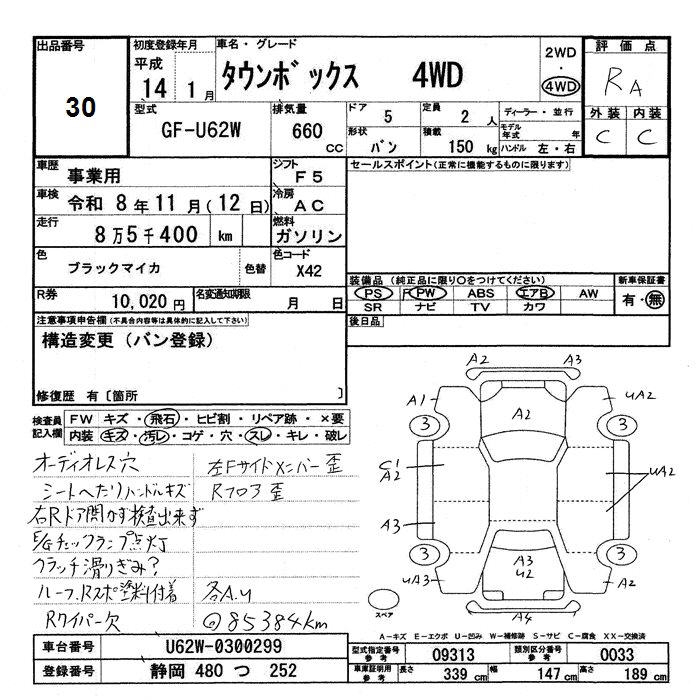 出品番号
30
初度登録年月
平成
14 1月
車名・グレード
タウンボックス 4WD
2WD
・
4WD
評価点
RA
外装 内装
C C
型式
GF-U62W
排気量
660 cc
ドア 5
形状 バン
定員 2人
積載 150 kg
ディーラー・並行
モデル年式 年
ハンドル 左・右
車歴 事業用
シフト F5
車検 令和 8年11月(12日)
冷房 AC
走行 8万5千400 km
燃料 ガソリン
色 ブラックマイカ 色替
色コード X42
R券 10,020円
名変通知期限 月 日
セールスポイント(正常に機能するものに限ります)
装備品(純正品に限り○をつけてください)
PS PW ABS エアB AW
SR ナビ TV カワ
新車保証書
有・無
後日品
注意事項申告欄(不具合内容等は具体的に記入して下さい)
構造変更(バン登録)
修復歴 有〔箇所 〕
検査員記入欄
FW キズ・飛石・ヒビ割・リペア跡・×要
内装 キズ・汚レ・コゲ・穴・スレ・キレ・破レ
オーディオレス穴 左Fサイドメンバー歪
シートへたりハンドルキズ Rフロア歪
右Rドア開かず検査出来ず
E/Gチェックランプ点灯
クラッチ滑りぎみ?
ルーフ、Rスポ塗料付着 各A.U
Rワイパー欠 @85384km
A2 A3
A1 UA2
3 A2 3
C1
A2
UA2
A3
3 A3
U2 3
UA3 A2
A4
スペア
A−キズ E−エクボ U−凹み W−補修跡 S−サビ C−腐食 XX−交換済
車台番号 U62W-0300299
登録番号 静岡 480 つ 252
型式指定番号 参考 09313
類別区分番号 参考 0033
車庫証明用 参考 長さ 339 cm 幅 147 cm 高さ 189 cm